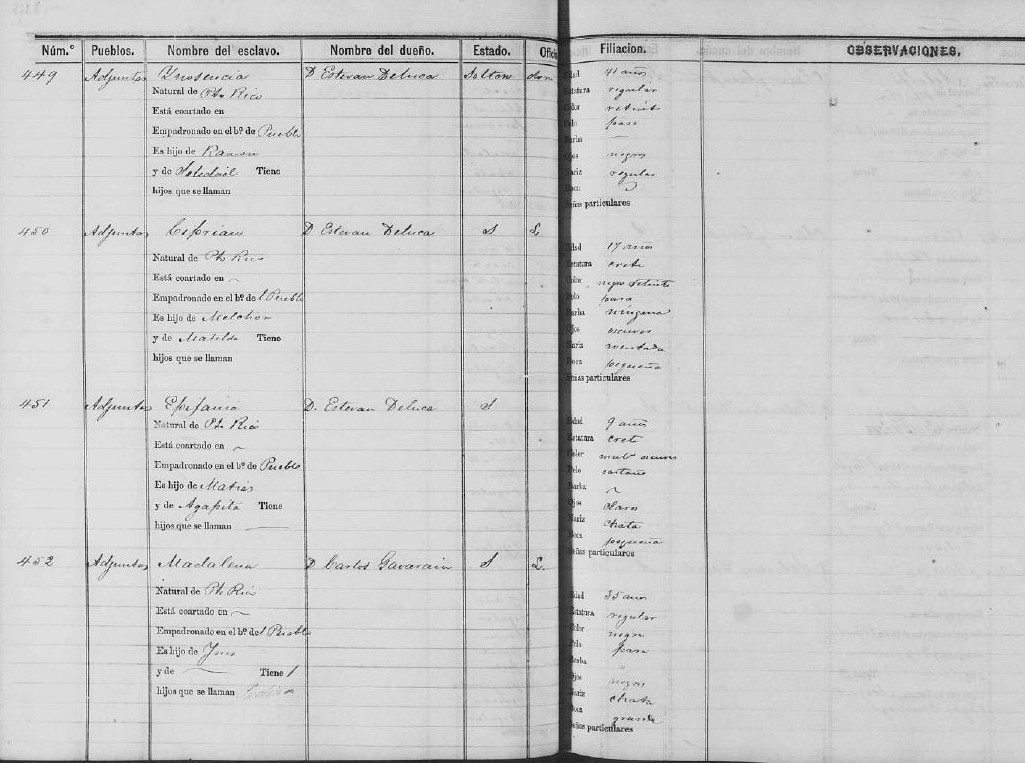 Núm.º Pueblos. Nombre del esclavo. Nombre del dueño. Estado. Ofici Filiacion. OBSERVACIONES.
449 Adjuntas Ynosencia D Estevan Deluca Soltera
Natural de Pto Rico
Está coartado en
Empadronado en el bº. de Pueblo
Es hijo de Ramon
y de Soledad Tiene
hijos que se llaman
Edad 41 años
Estatura regular
Color retinto
Pelo pasa
Barba —
Ojos negros
Nariz regular
Boca
Señas particulares
450 Adjuntas Ciprian D Estevan Deluca S L
Natural de Pto Rico
Está coartado en
Empadronado en el bº. de l Pueblo
Es hijo de Melchor
y de Matilde Tiene
hijos que se llaman
Edad 17 años
Estatura
Color negro retinto
Pelo pasa
Barba ninguna
Ojos oscuros
Nariz
Boca pequeña
Señas particulares
451 Adjuntas Epifania D. Estevan Deluca S
Natural de Pto Rico
Está coartado en
Empadronado en el bº. de Pueblo
Es hijo de Matias
y de Agapita Tiene
hijos que se llaman —
Edad 9 años
Estatura
Color mulº oscuro
Pelo castaño
Barba
Ojos claros
Nariz chata
Boca pequeña
Señas particulares
452 Adjuntas Madalena D Carlos S L.
Natural de Pto Rico
Está coartado en
Empadronado en el bº. de l Pueblo
Es hijo de
y de — Tiene 1
hijos que se llaman
Edad 35 años
Estatura regular
Color negro
Pelo pasa
Barba "
Ojos negros
Nariz chata
Boca grande
Señas particulares